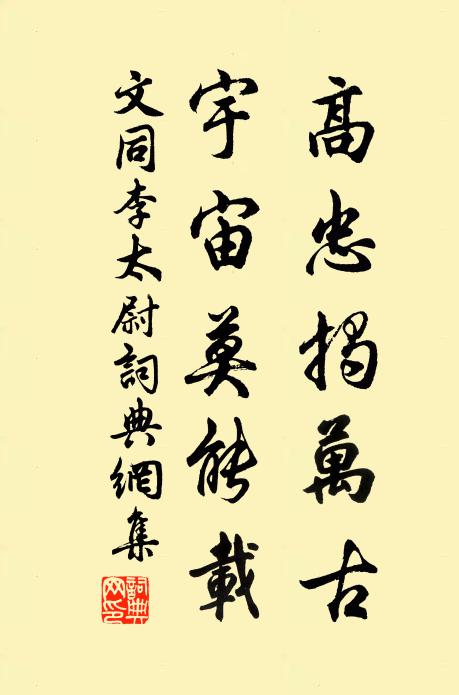 高忠揭萬古
宇宙莫能載
文同李太尉詞典網集
詞典网印